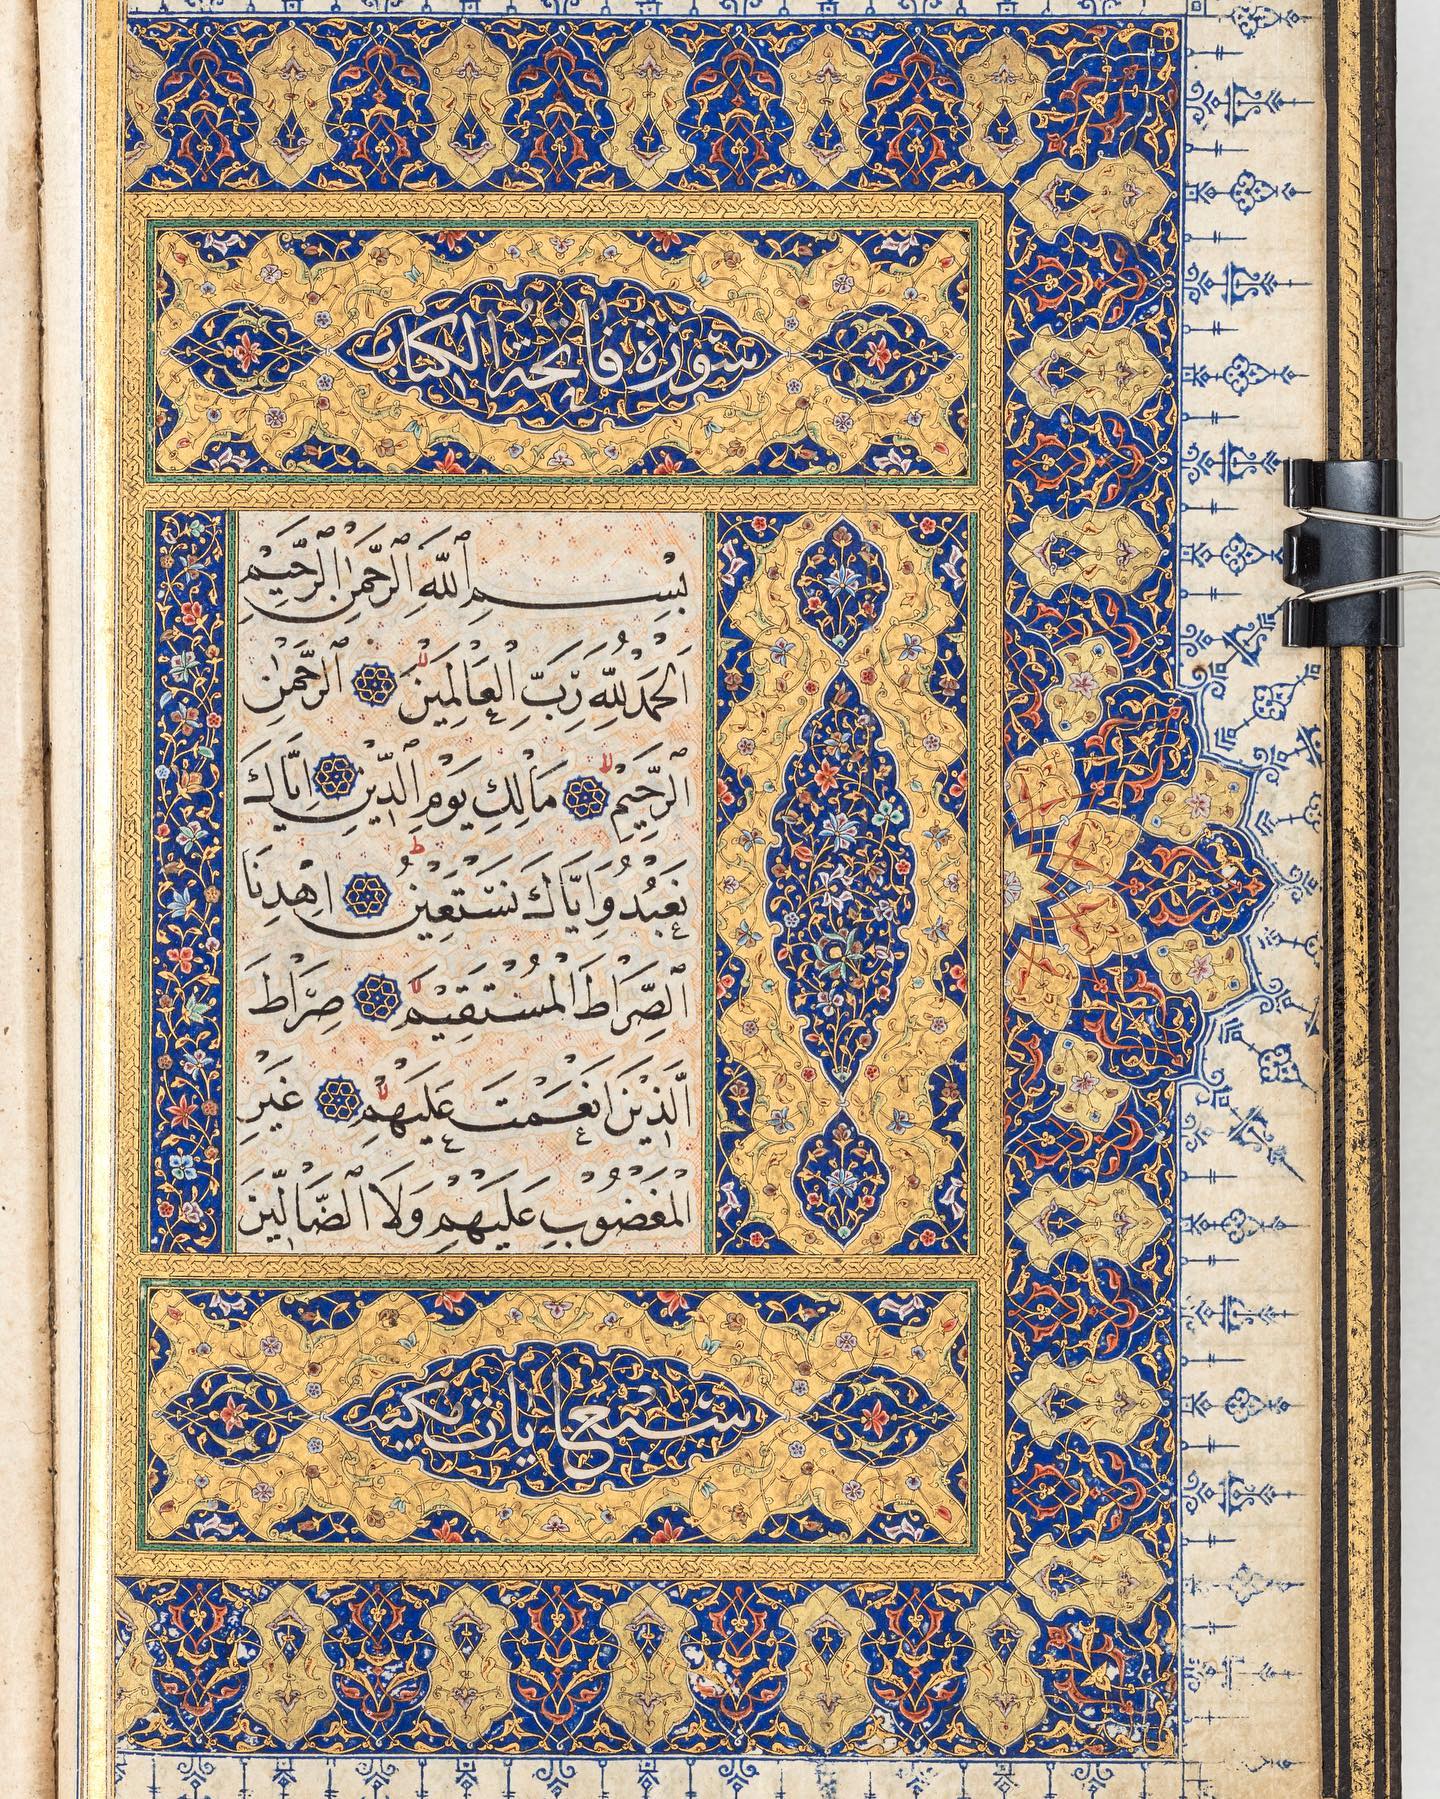 سُورَة فَاتِحَة الكِتَاب
بِسْمِ ٱللَّهِ ٱلرَّحْمَٰنِ ٱلرَّحِيمِ
اَلْحَمْدُ لِلَّهِ رَبِّ الْعَالَمِينَ ۙ ٱلرَّحْمَٰنِ
ٱلرَّحِيمِ ۙ مَالِكِ يَوْمِ ٱلدِّينِ اِيَّاكَ
نَعْبُدُ وَاِيَّاكَ نَسْتَعِينُ ۗ اِهْدِنَا
ٱلصِّرَاطَ الْمُسْتَقِيمَ ۙ صِرَاطَ
ٱلَّذِينَ اَنْعَمْتَ عَلَيْهِمْ ۙ غَيْرِ
الْمَغْضُوبِ عَلَيْهِمْ وَلَا ٱلضَّالِّينَ
سبع ايات مكية